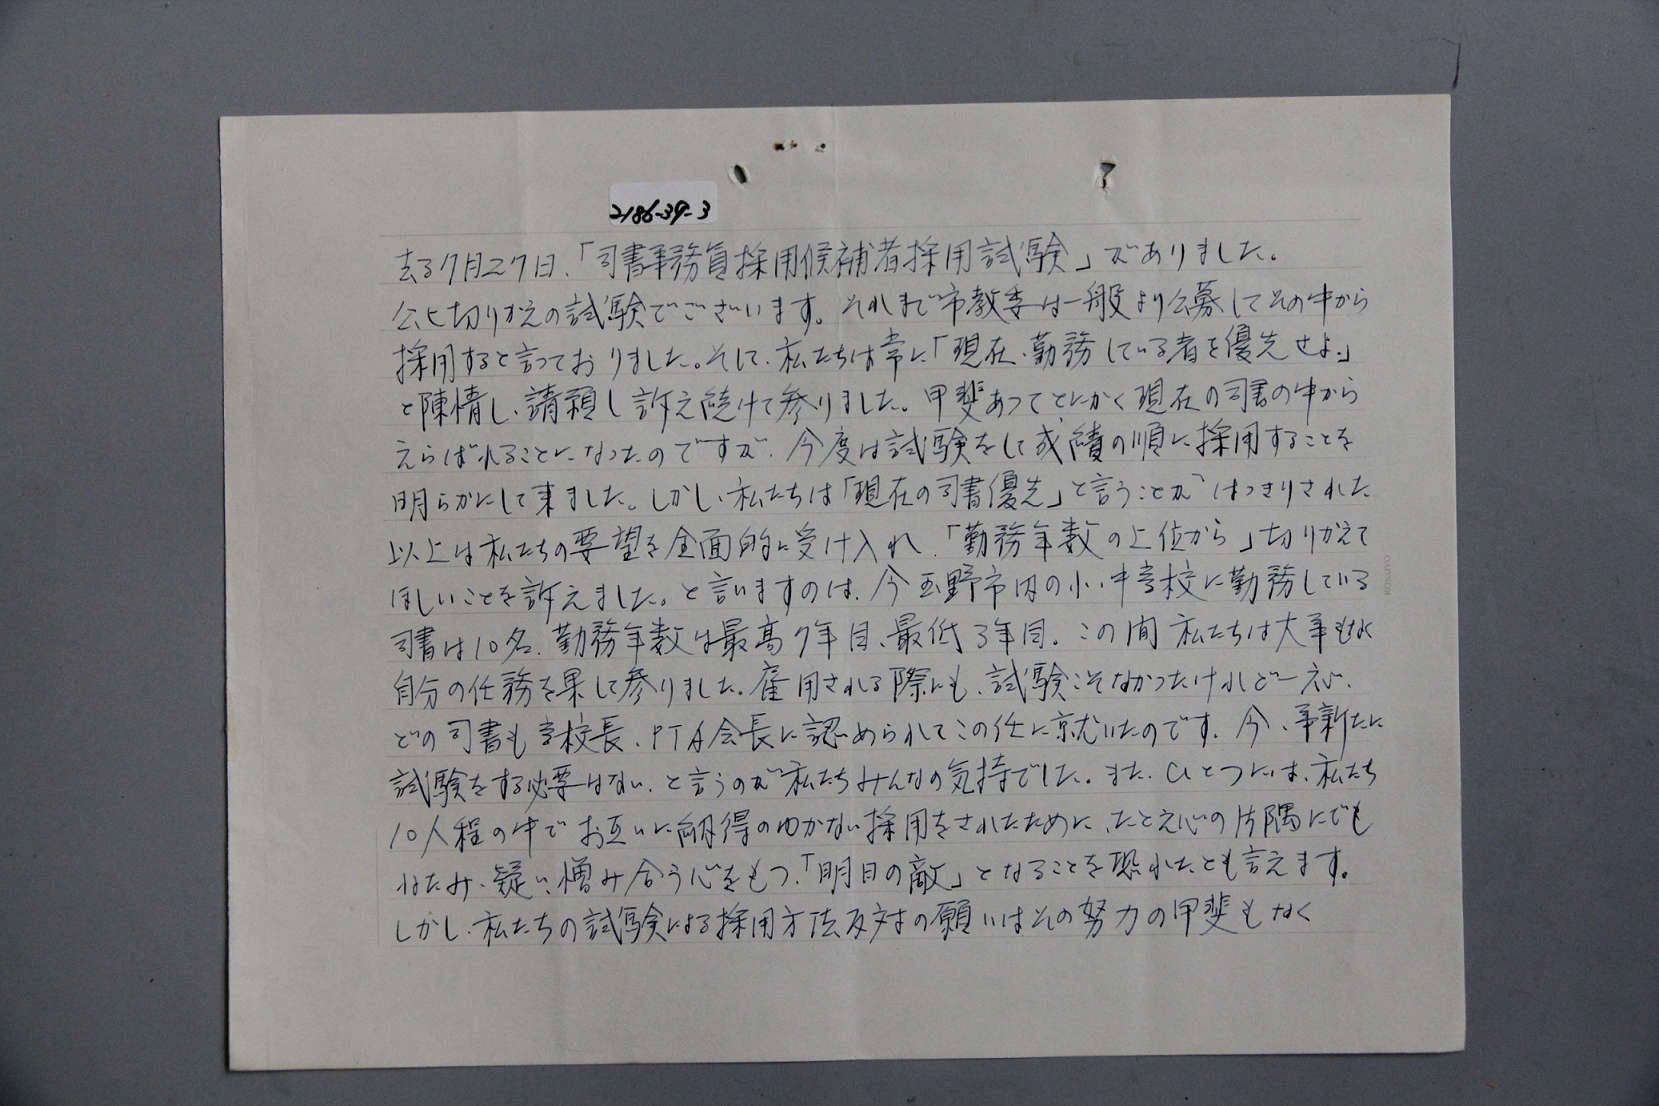 2186-39-3
去る7月27日、「司書事務員採用候補者採用試験」がありました。
公ヒ切りかえの試験でございます。それまで市教委は一般より公募してその中から
採用すると言っておりました。そして、私たちは常に「現在、勤務している者を優先せよ。」
と陳情し、請願し訴え続けて参りました。甲斐あってとにかく現在の司書の中から
えらばれることになったのですが、今度は試験をして成績の順に採用することを
明らかにして来ました。しかし、私たちは「現在の司書優先」と言うことがはっきりされた
以上は私たちの要望を全面的に受け入れ、「勤務年数の上位から」切りかえて
ほしいことを訴えました。と言いますのは、今玉野市内の小、中学校に勤務している
司書は10名、勤務年数は最高7年目、最低3年目。この間私たちは大事もなく
自分の任務を果して参りました。雇用される際にも、試験こそなかったけれど一応、
どの司書も学校長、PTA会長に認められてこの任に就いたのです。今、事新たに
試験をする必要はない、と言うのが私たちみんなの気持でした。また、ひとつには、私たち
10人程の中でお互いに納得のゆかない採用をされたために、たとえ心の片隅にでも
ねたみ、疑い、憎み合う心をもつ、「明日の敵」となることを恐れたとも言えます。
しかし、私たちの試験による採用方法反対の願いはその努力の甲斐もなく